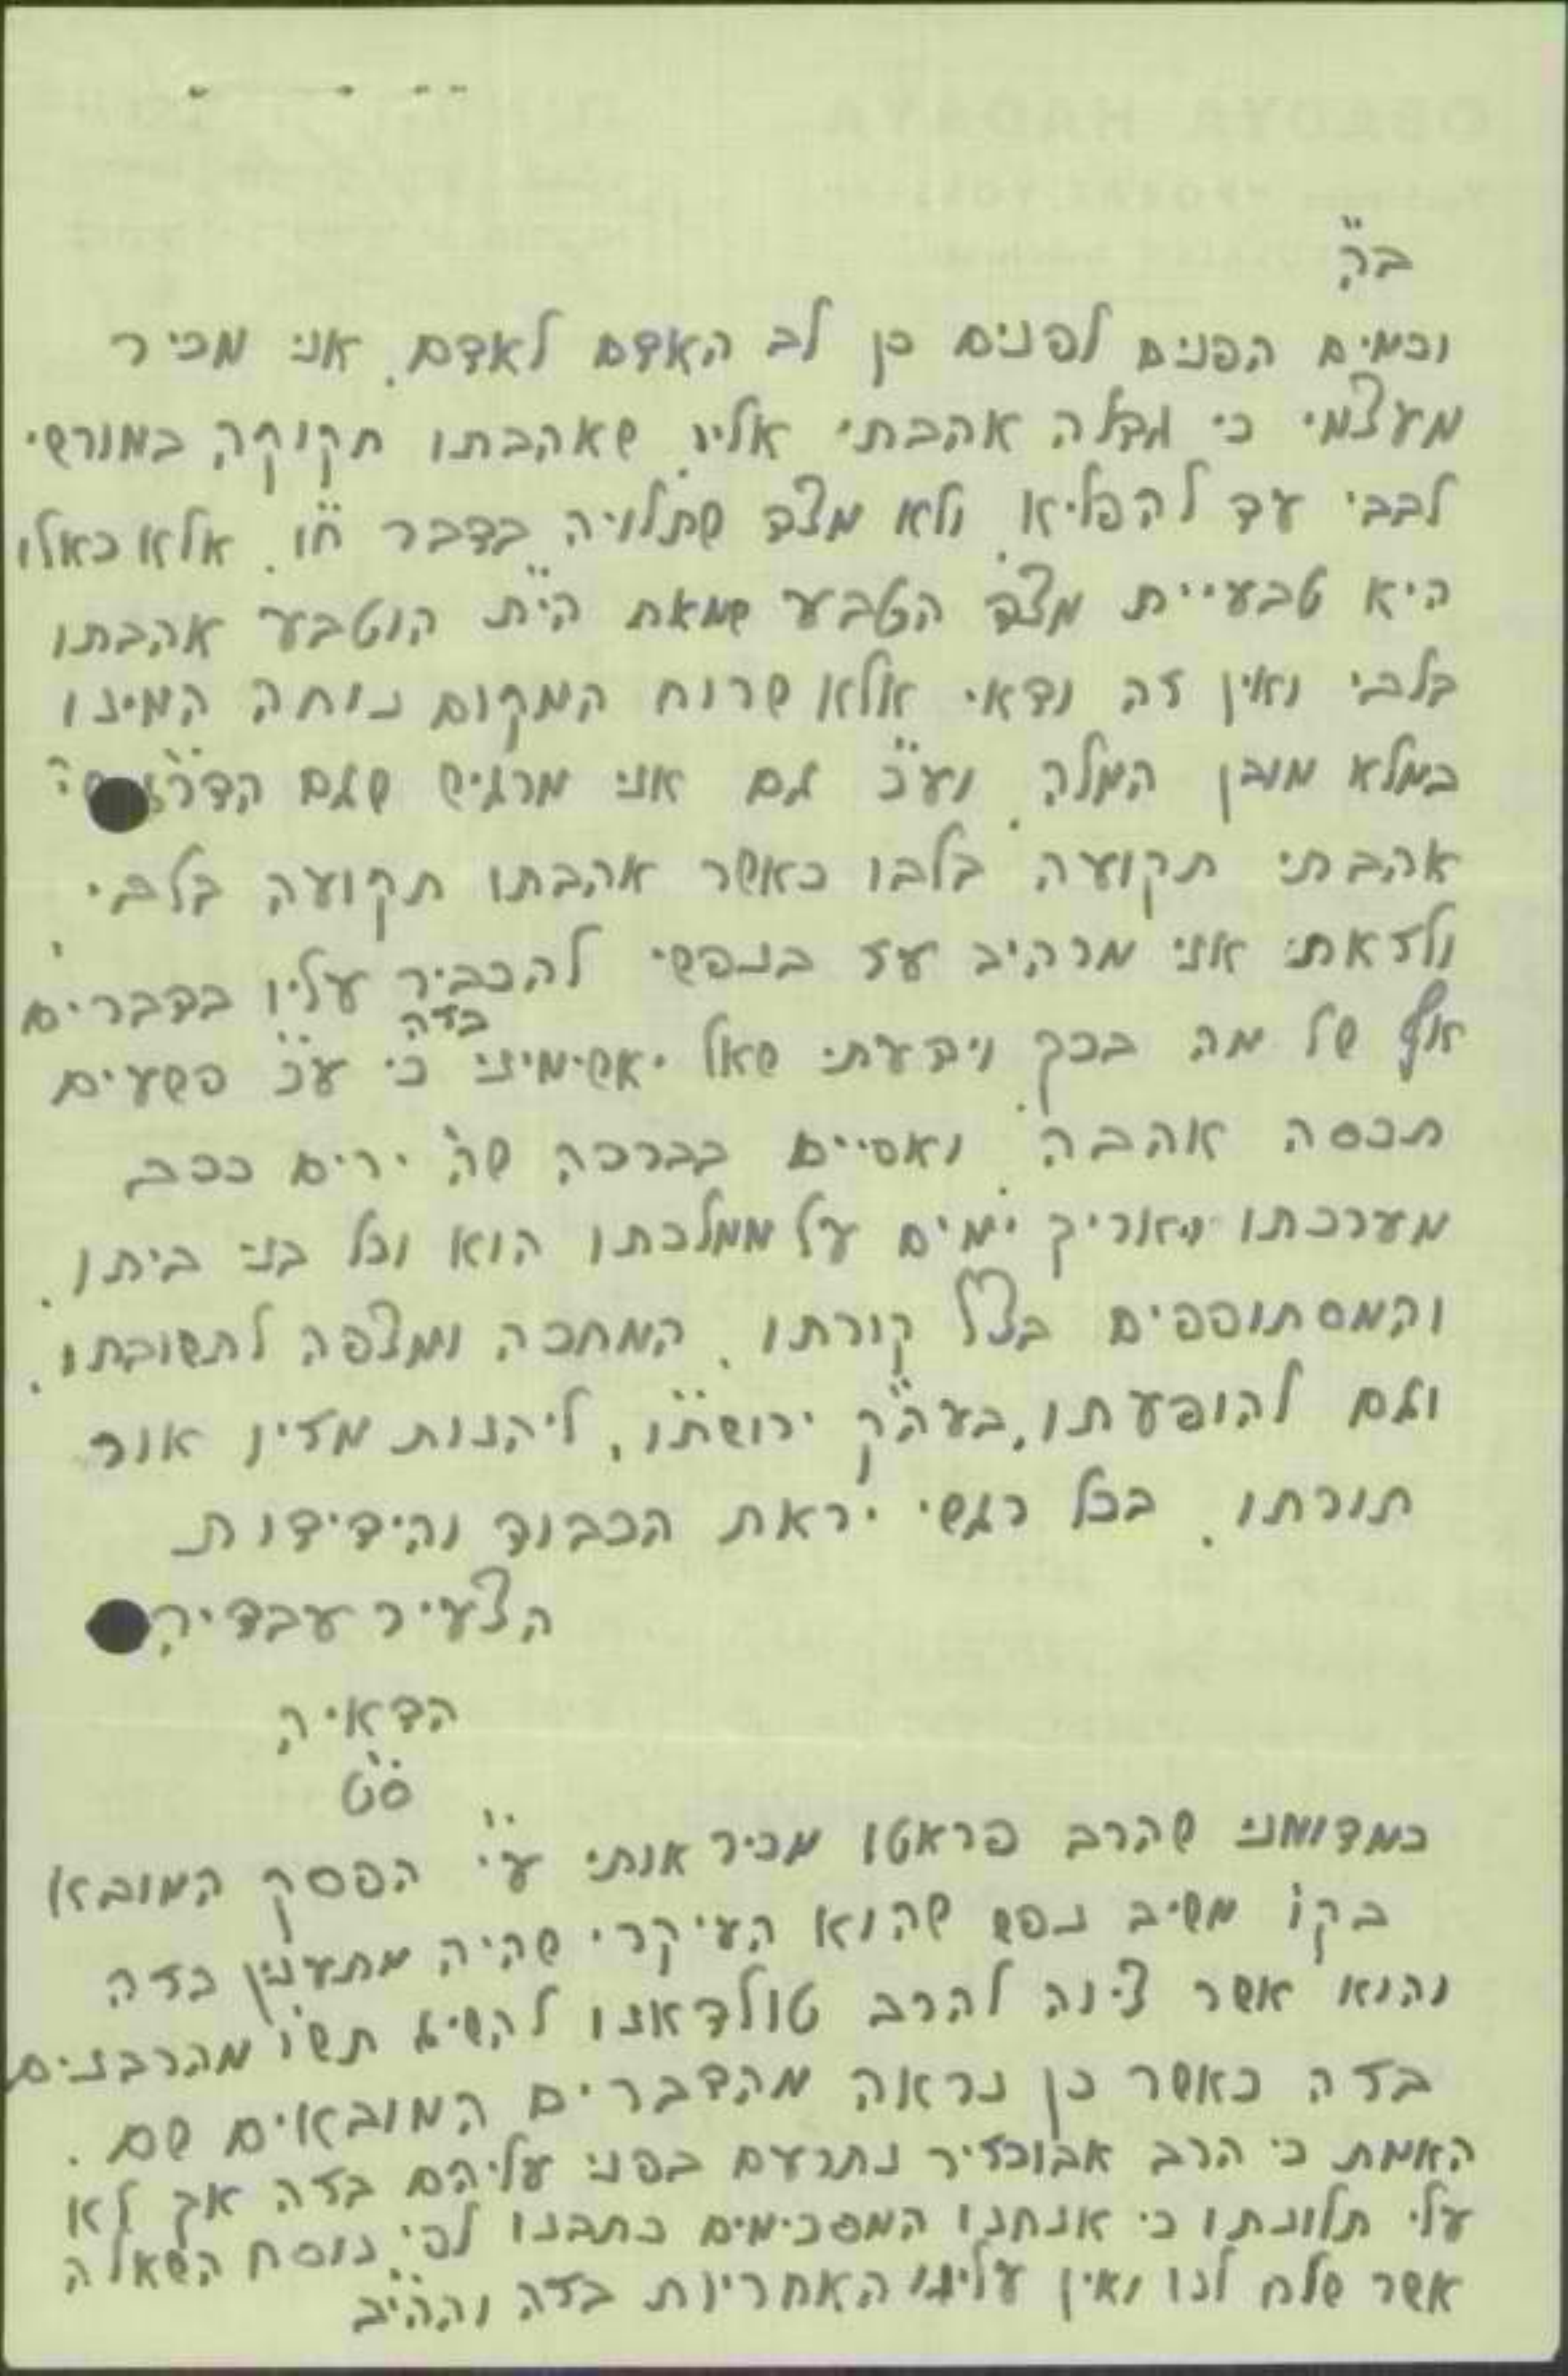 ב"ה
וכמים הפנים לפנים כן לב האדם לאדם. אני מכיר
מעצמי כי גדלה אהבתי אליו. שאהבתו חקוקה במורשי
לבבי עד להפליא. ולא מצד שתלויה בדבר ח"ו. אלא כאלו
היא טבעיית מצד הטבע שמאת הי"ת הוטבע אהבתו
בלבי ואין זה ודאי אלא שרוח המקום נוחה המינו
במלא מובן המלה. וע"כ גם אני מרגיש שגם
אהבתי תקועה בלבו כאשר אהבתו תקועה בלבי.
ולזאת אני מרהיב עז בנפשי להכביר עליו בדברים
אף של מה בכך וידעתי שאל יאשימיני בזה כי ע"כ פשעים
תכסה אהבה. ואסיים בברכה שה' ירים ככב
מערכתו יאוריך ימים על ממלכתו הוא וכל בני ביתו.
והמסתופפים בצל קורתו. המחכה ומצפה לתשובתו.
וגם להופעתו, בעה"ק ירושת"ו, ליהנות מזיו אור
תורתו. בכל רגשי יראת הכבוד והידידות
הצעיר עבדיה
הדאיה
ס"ט
כמדומני שהרב פראטו מכיר אותי ע"י הפסק המובא
בקו' משיב נפש שהוא העיקרי שהיה מתענין בזה
והוא אשר צינה להרב טולדאנו להשיג תשו' מהרבנים
בזה כאשר כן נראה מהדברים המובאים שם.
האמת כי הרב אבוכזיר נתרעם בפני עליהם בזה אך לא
עלי תלונתו כי אנחנו המסכימים כתבנו לפי נוסח השאלה
אשר שלח לנו ואין עלינו האחריות בזה והה"יב